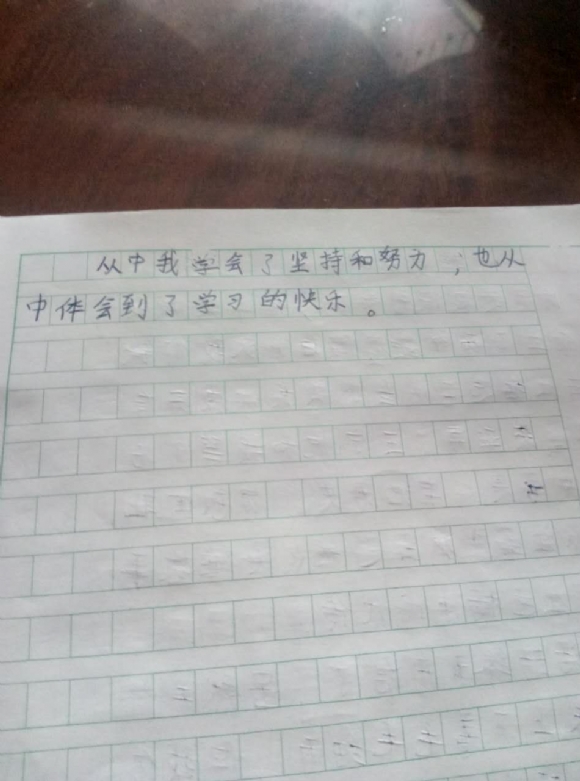 从中我学会了坚持和努力，也从
中体会到了学习的快乐。